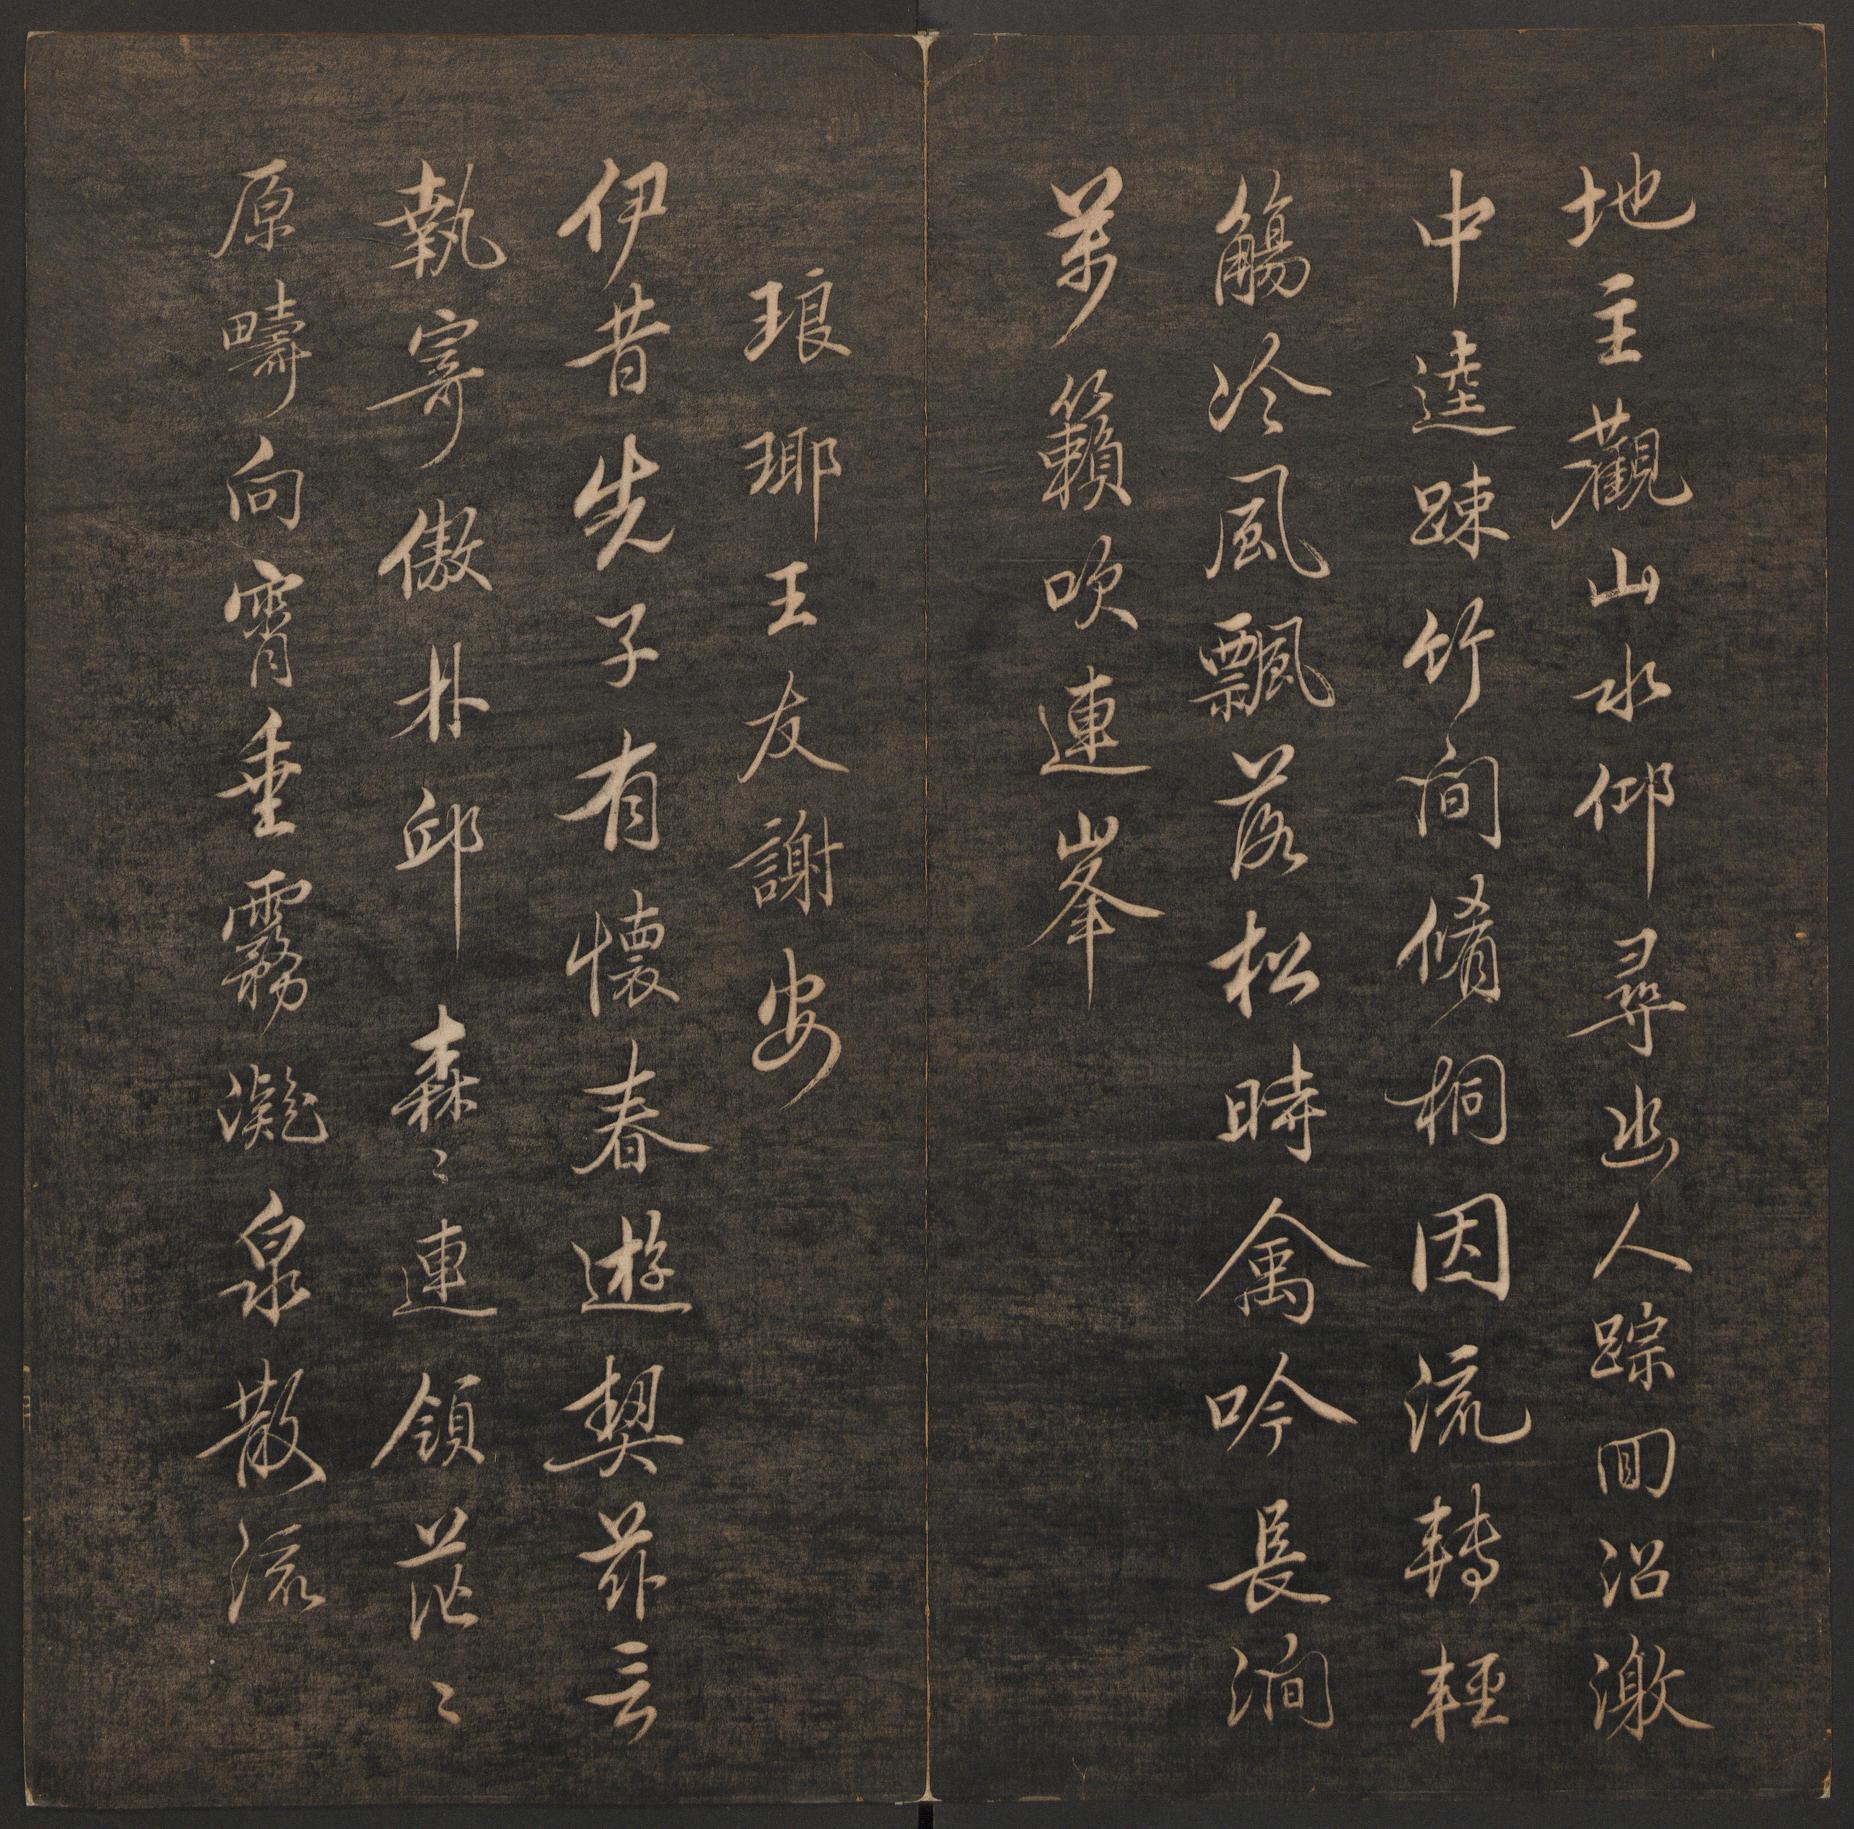 地主觀山水仰尋幽人踪回沼激
中逵踈竹間脩桐因流轉輕
觴冷風飄落松時禽吟長澗
萬籟吹連峯
琅瑘王友謝安
伊昔先子有懷春遊契茲言
執寄傲林丘森〻連領茫〻
原疇迥霄垂霧凝泉散流